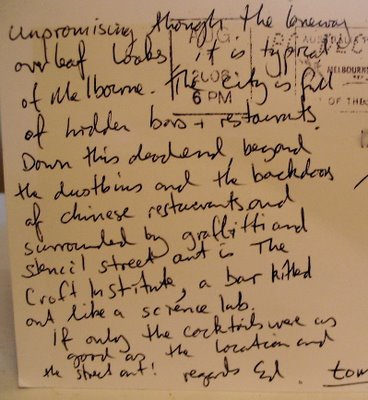 unpromising though the laneway
overleaf looks it is typical
of Melbourne. The city is full
of hidden bars + restaurants.
Down this deadend, beyond
the dustbins and the backdoors
of chinese restaurants and
surrounded by graffitti and
stencil street art is The
Croft Institute, a bar kitted
out like a science lab.
If only the cocktails were as
good as the location and
the street art! regards Ed.
AUG
6 PM
MELBOURNE
OF THE
tom